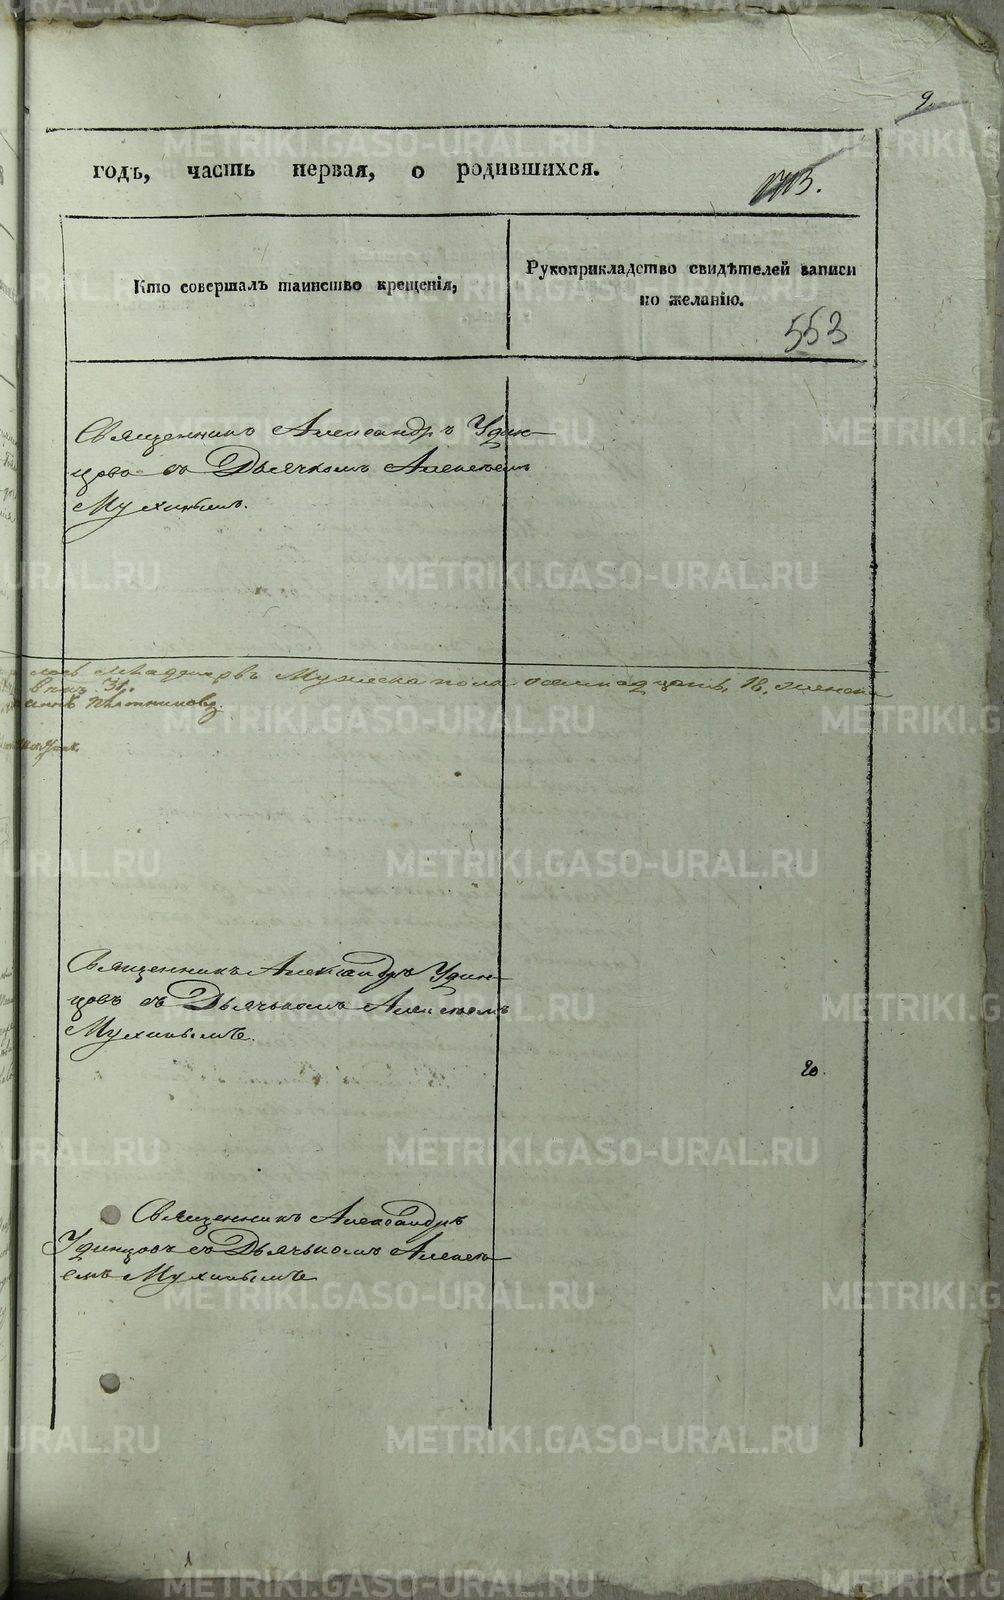 9.
годъ, часть первая, о родившихся.
Кто совершалъ таинство крещенія,
Рукоприкладство свидѣтелей записи
по желанію.
553
Священникъ Александръ Удин-
цовъ съ Дьячкомъ Алексѣемъ
Мухинымъ.
Мужеска пола осемнадцать, 18, женска
31.
Священникъ Александръ Удин-
цовъ съ Дьячькомъ Алексѣемъ
Мухинымъ.
20.
Священникъ Александръ
Удинцовъ съ Дьячькомъ Алексѣ-
емъ Мухинымъ
METRIKI.GASO-URAL.RU